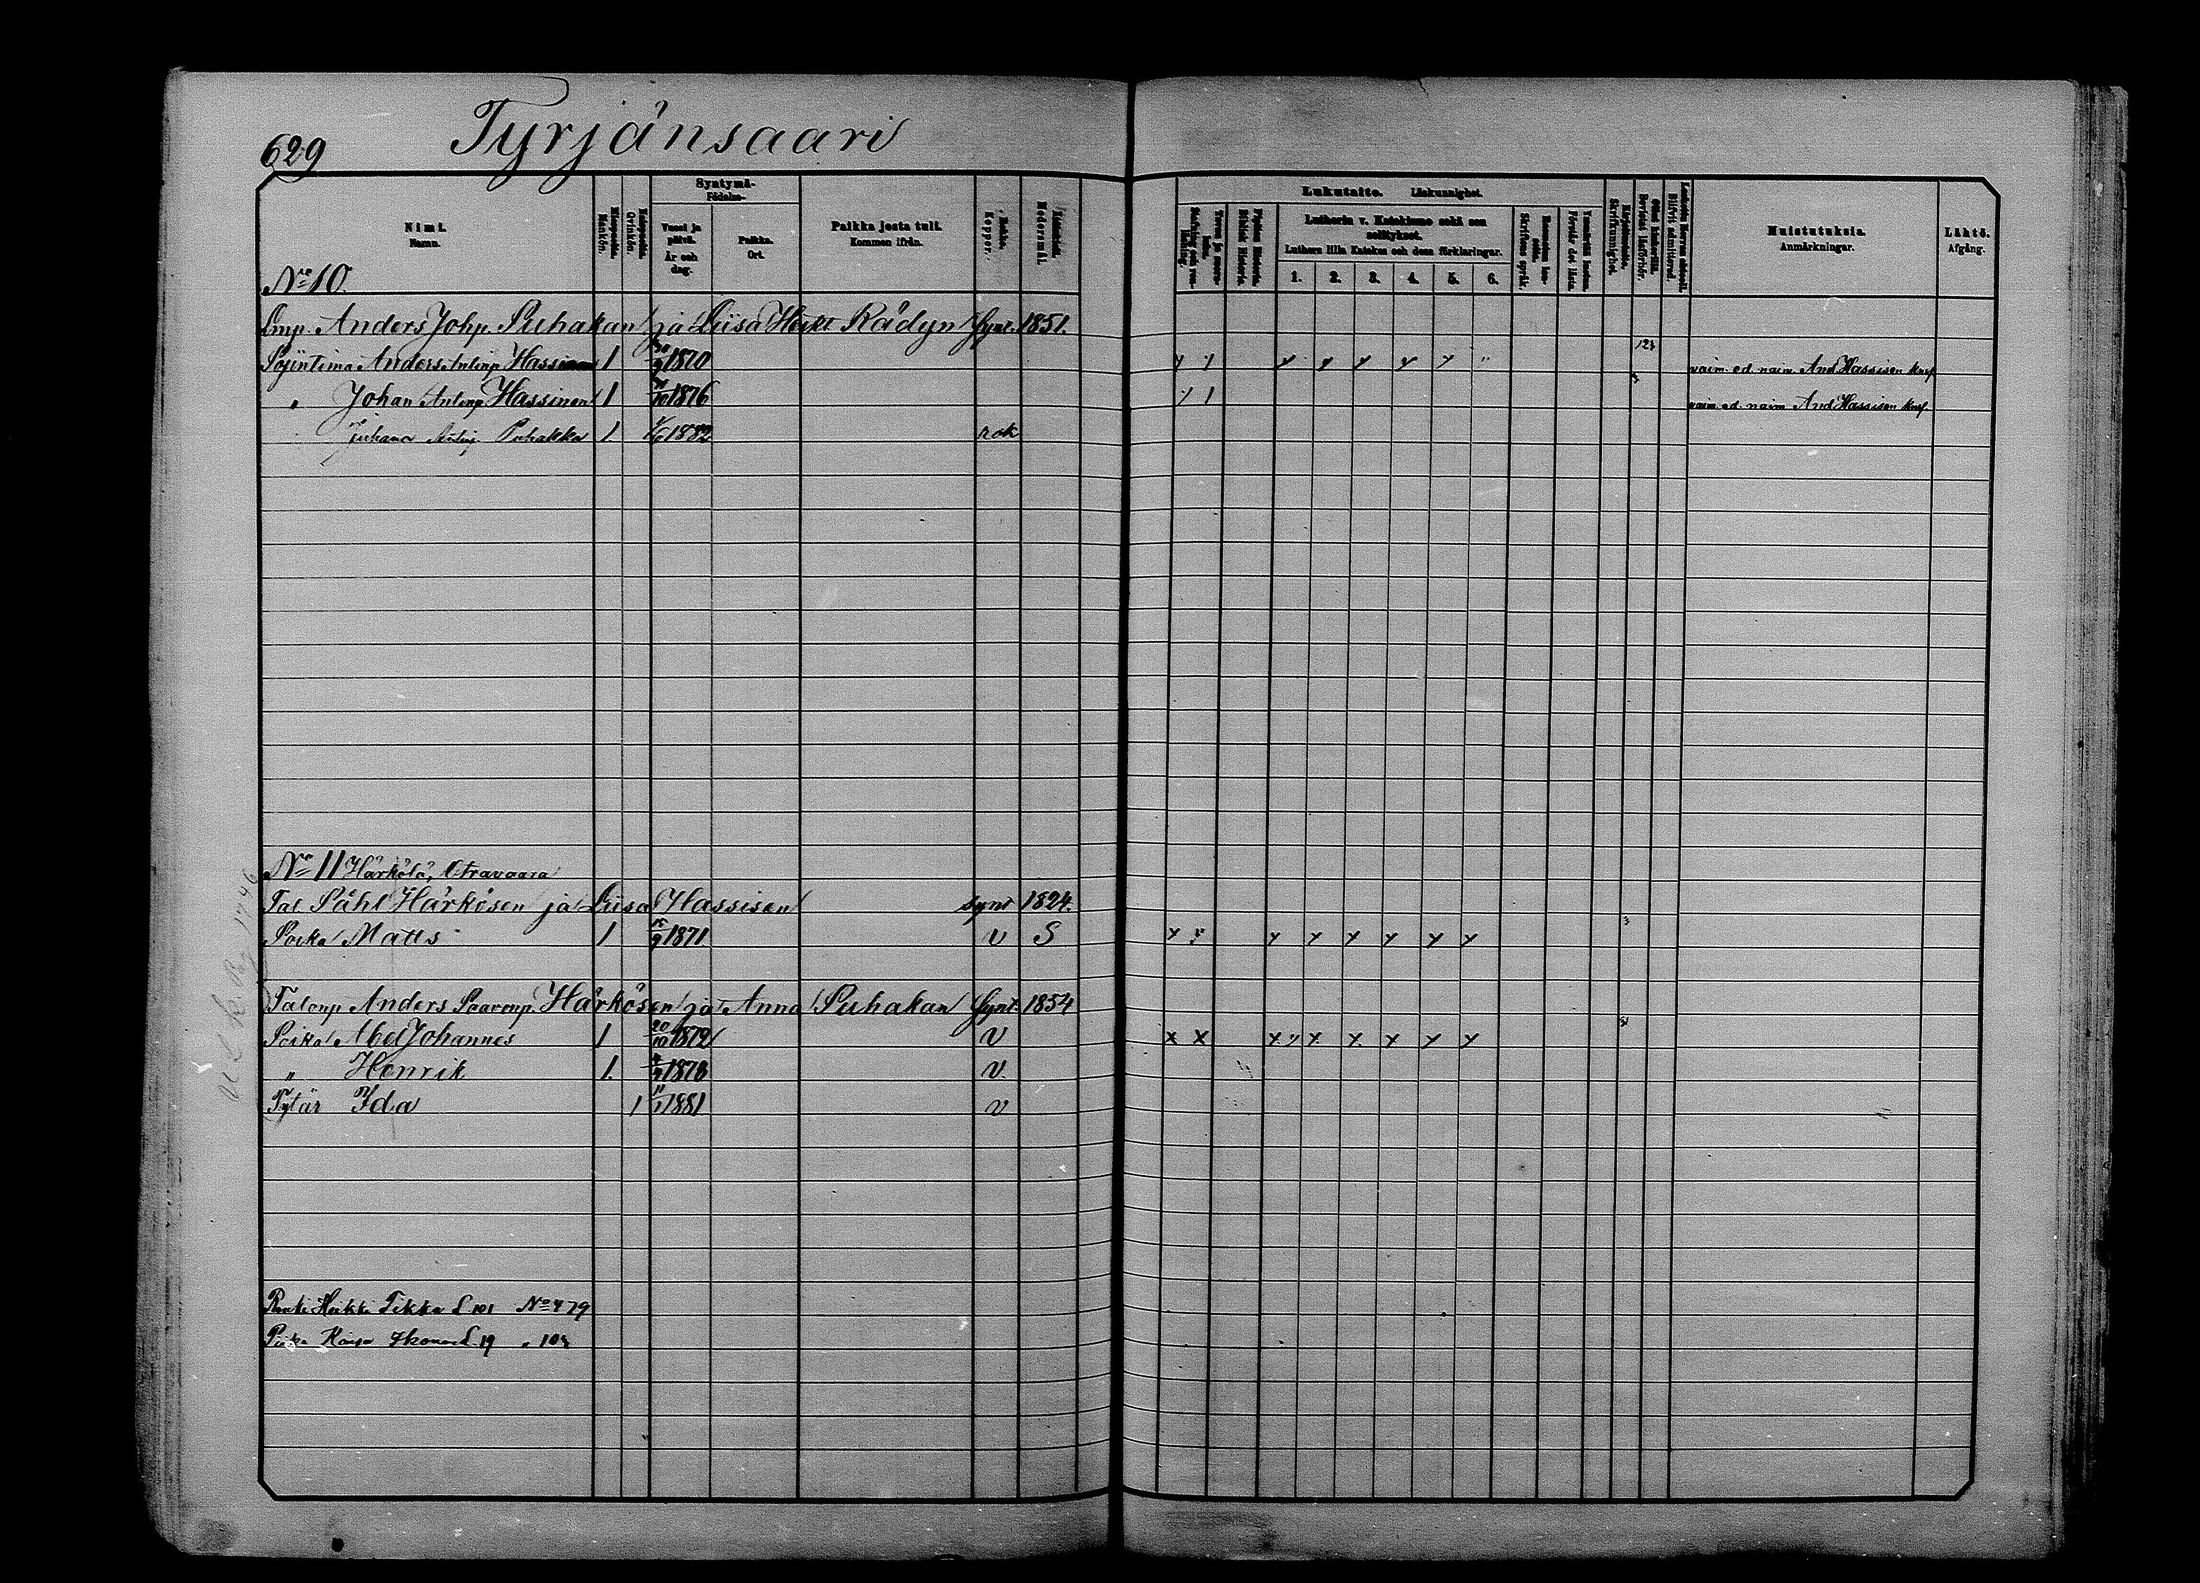 629 Tyrjänsaari
Nimi. Namn.
Miespuolia. Mankön.
Naispuolia. Qvinkön.
Syntymä- Födelse-
Vuosi ja päivä. År och dag.
Paikka. Ort.
Paikka josta tuli. Kommen ifrån.
Rokko. Koppor.
Modersmål.
Lukutaito. Läskunnighet.
Lutherin v. Katekismo sekä sen selitykset.
Luthers lilla Katekes och dess förklaringar.
1. 2. 3. 4. 5. 6.
Muistutuksia. Anmärkningar.
Lähtö. Afgång.
No 10.
Lmp. Anders Johp. Puhakan ja Liisa Heikt Rädyn Synt. 1851.
Anders Antinp Hassinen 1 1870 vaim. ed. naim. And Hassisen kans.
" Johan Antinp Hassinen 1 1876 vaim. ed. naim And Hassisen kans.
Juhana Antinp. Puhakka 1 1882 rok
No 11 Härkölä, Otravaara
Tal Påhl Härkösen ja Liisa Hassisen synt 1824.
Poika Matts 1 1871 v S
Talonp Anders Paavonp. Härkösen ja Anna Puhakan Synt. 1854
Poika Abel Johannes 1 20/10 1872 v
" Henrik 1. 1878 v.
Tytär Ida 1 1881 v
Renki Heikki Tikka L 101 No 479
Piika Kaisa Ikonen L. 19 " 108